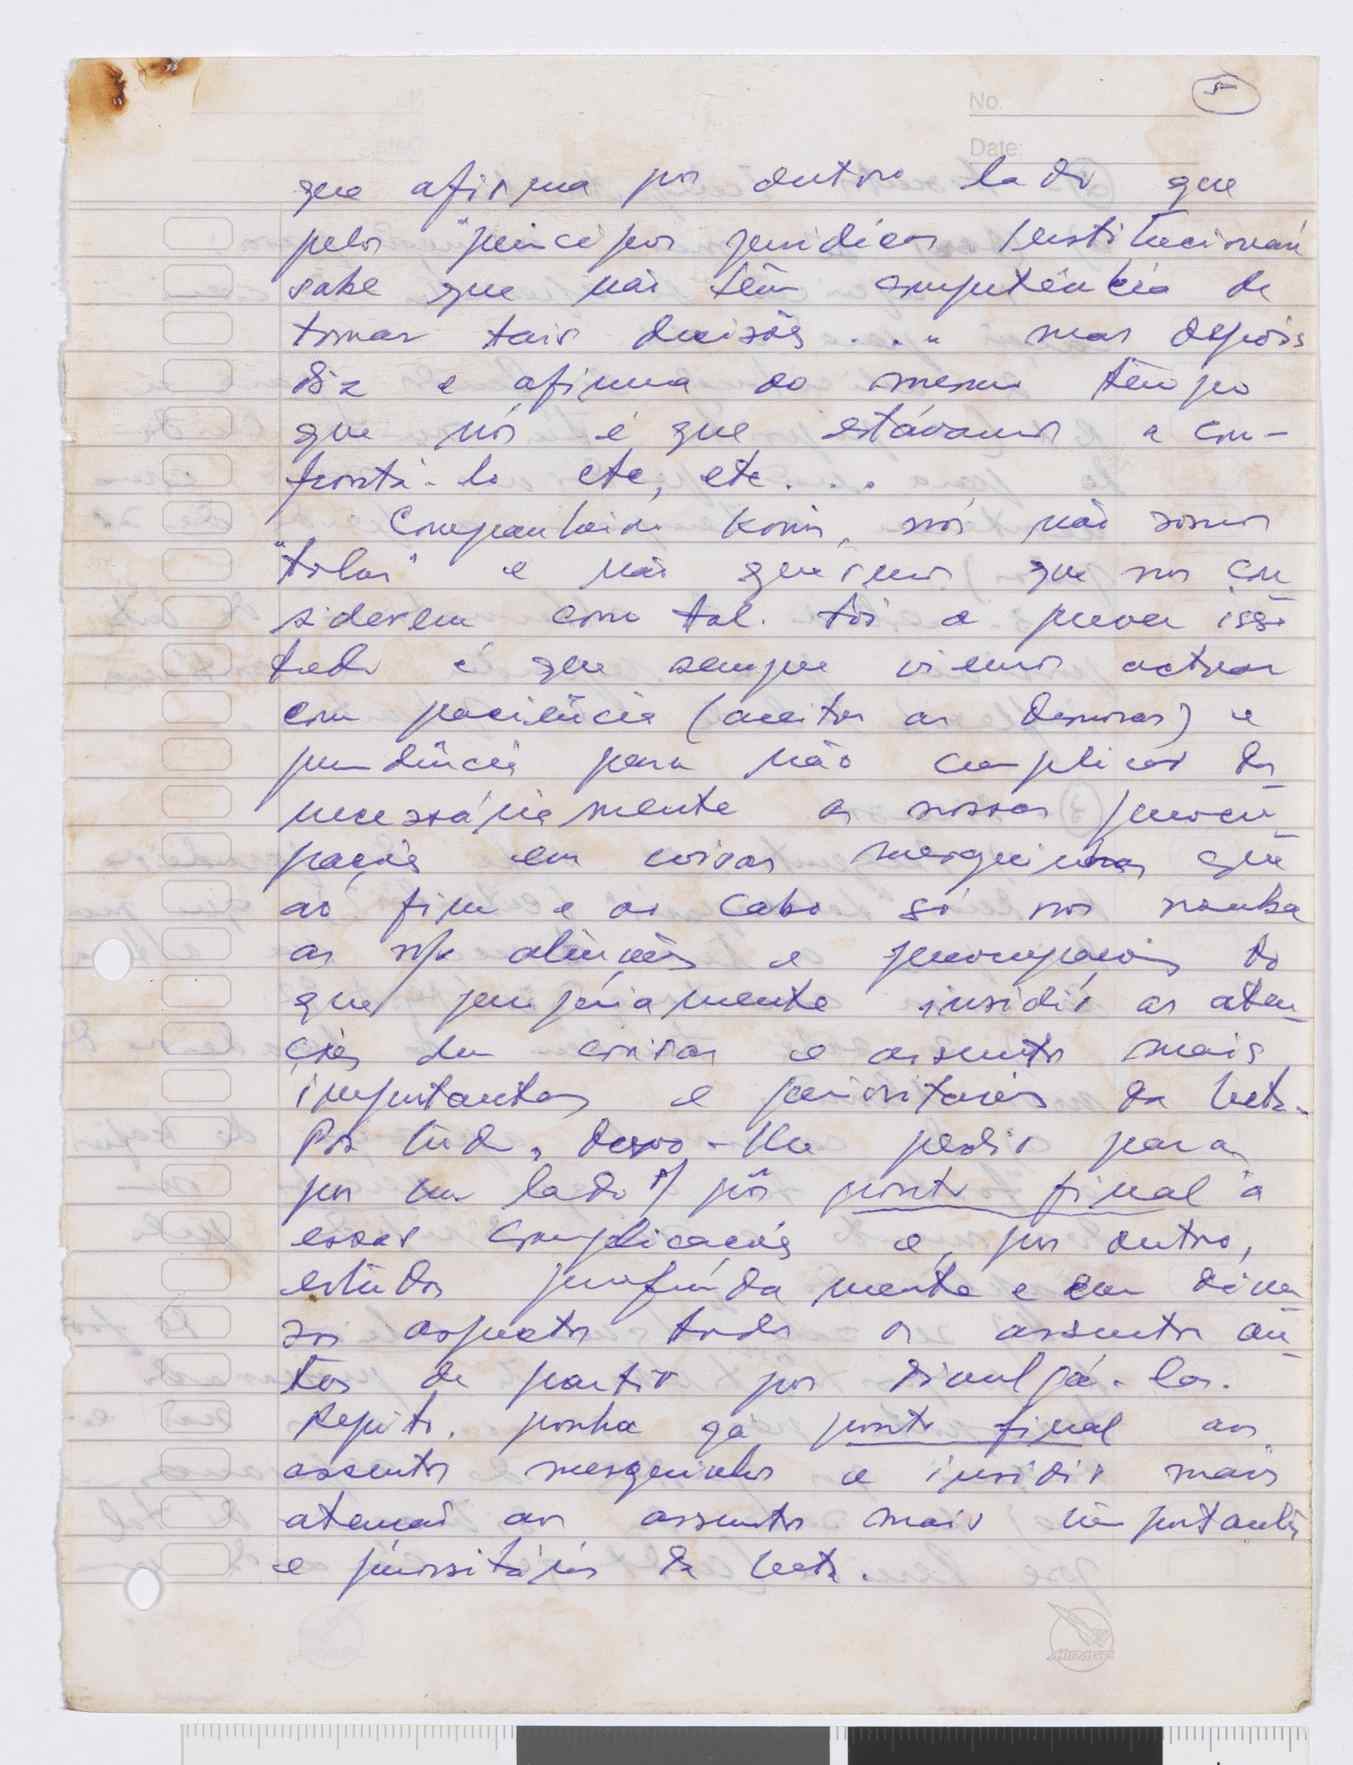 5
No.
Date:
que afirma por outro lado que
pelos "princípos juridicos Institucionais
sabe que não têm competência de
tomar tais decisões ..." mas depois
diz e afirma ao mesmo têmpo
que nós é que estávamos a con-
frontá-lo etc, etc...
Companheiro Konis, nós não somos
"tolos" e não querêmos que nos con
siderem como tal. a prova isso
tudo é que sempre viemos actuar
com paciência (aceitar as demoras) e
prudência para não complicar des
necessáriamente as nossas preocu
pações em coisas mesquinhas que
ao fim e ao cabo só nos rouba
as n/s atenções e preocupações do
que propriamente insidir as aten
ções em coisas e assuntos mais
importantes e prioritários da luta.
Por tudo, devo-lhe pedir para
por um lado p/ pôr ponto final à
essas complicações e, por outro,
estudar profundamente e em diver
sos aspectos todos os assuntos an
tes de partir por divulgá-los.
Repito, ponha já ponto final aos
assuntos mesquinhos e insidir mais
atenção aos assuntos mais importantes
e prioritários da luta.